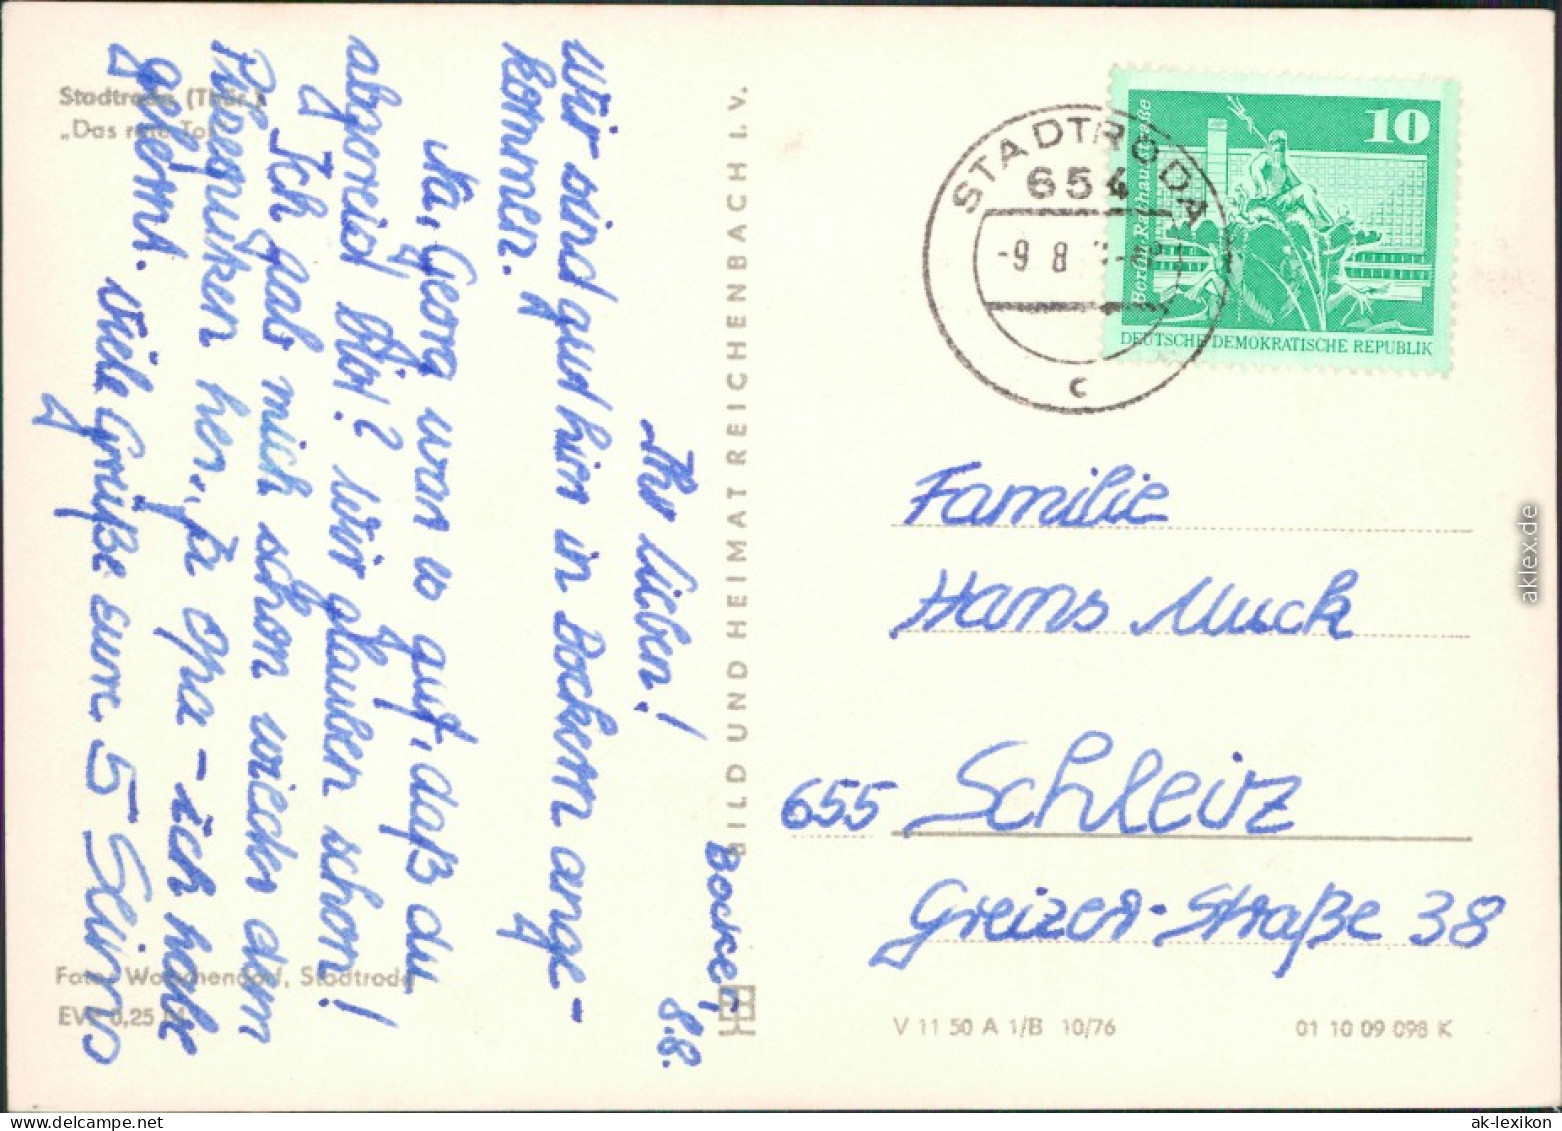 Stadtroda (Thür.)
„Das rote Tor"
Bockern, 8.8.
Ihr Lieben!
Wir sind gut hier in Bockern ange-
kommen.
Na, Georg war so auf, daß du
abgereist bist? Wir glauben schon!
Ich gab mich schon wieder dem
her, „ja Opa - ich habe
gelernt. Viele Grüße eure 5
BILD UND HEIMAT REICHENBACH I. V.
Foto: Stadtroda
EVP 0,25 M
STADTRODA
654
-9 8
c
10
Berlin, Rathausstraße
DEUTSCHE DEMOKRATISCHE REPUBLIK
Familie
Hans Muck
655 Schleiz
Greizer-Straße 38
V 11 50 A 1/B 10/76
01 10 09 098 K
aklex.de
ak-lexikon